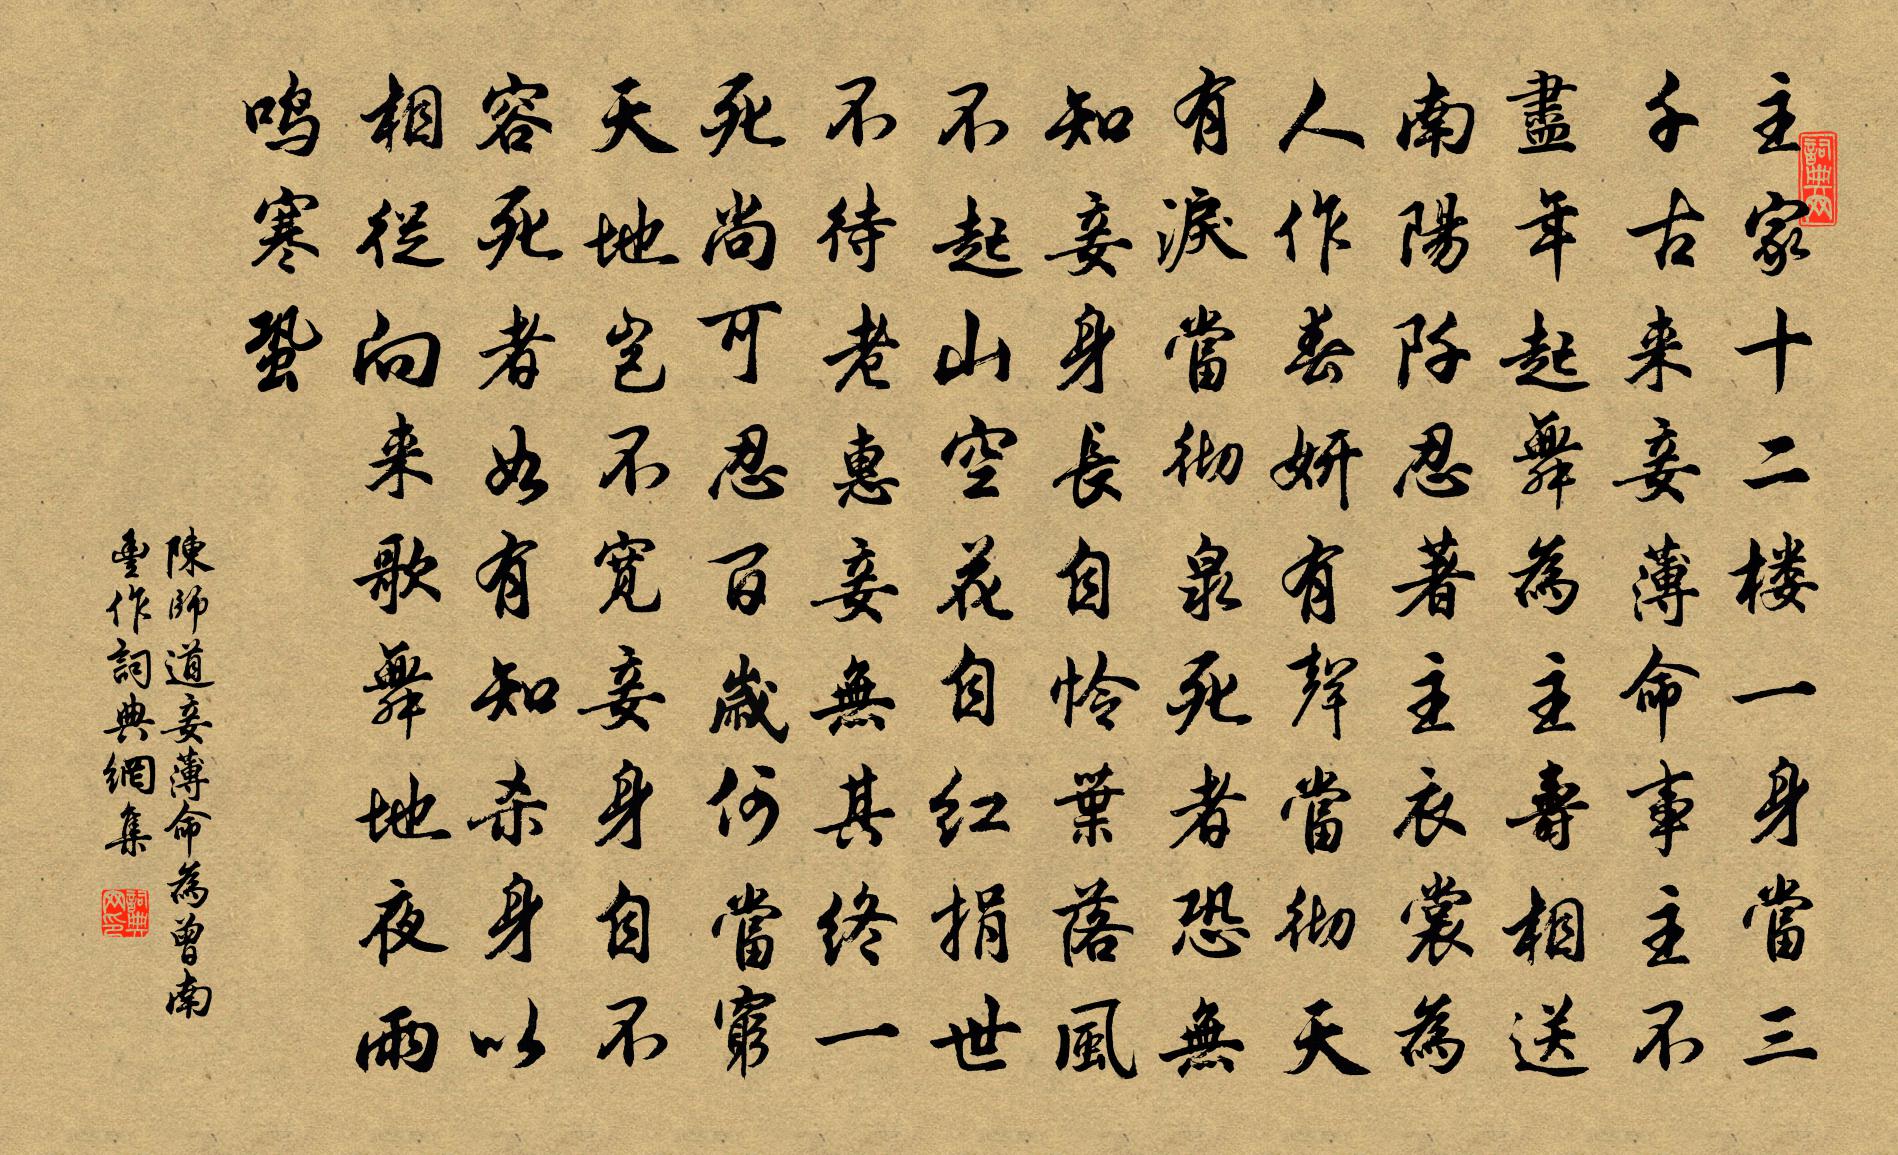 主家十二楼一身當三
千古来妾薄命事主不
盡年起舞為主壽相送
南陽阡忍著主衣裳為
人作春妍有聲當彻天
有淚當彻泉死者恐無
知妾身長自怜葉落風
不起山空花自红捐世
不待老惠妾無其终一
死尚可忍百歲何當窮
天地岂不寬妾身自不
容死者如有知杀身以
相從向来歌舞地夜雨
鸣寒蛩
陳師道妾薄命為曾南
豐作詞典網集
詞典网
詞典网印